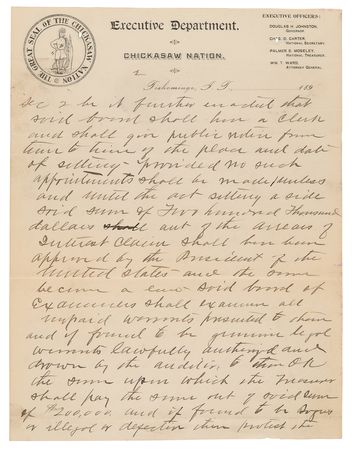 THE GREAT SEAL OF THE CHICKASAW NATION
Executive Department.
CHICKASAW NATION.
EXECUTIVE OFFICERS:
DOUGLAS H. JOHNSTON,
GOVERNOR.
CHAS. D. CARTER,
NATIONAL SECRETARY.
PALMER S. MOSELEY,
NATIONAL TREASURER.
WM. T. WARD,
ATTORNEY GENERAL.
2
Tishomingo, I. T. 189
Sec 2 be it further enacted that
said board shall have a Clerk
and shall give public notice from
time to time of the place and date
of sitting - provided no such
appointments shall be made unless
and until the act setting a side
said sum of Two hundred Thousand
dollars shall out of the arrears of
Interest Claim shall have been
approved by the President of the
United States and the same
become a law said board of
Examiners shall examine all
unpaid warrants presented to them
and if found to be genuine legal
warrants lawfully authorized and
drawn by the auditor to OK
the same upon which the Treasurer
shall pay the same out of said sum
of $200,000 and if found to be Bogus
or illegal or defective then protest the